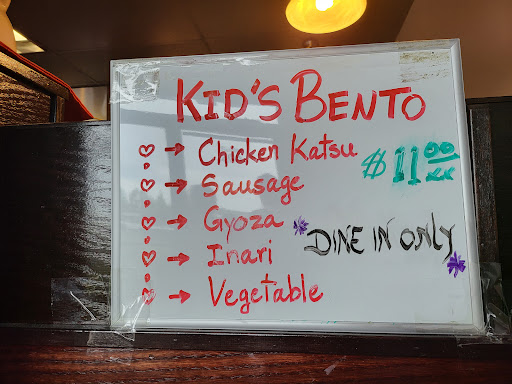 KID'S BENTO
♡ → Chicken Katsu
$11.00
♡ → Sausage
♡ → Gyoza
*DINE IN ONLY*
♡ → Inari
♡ → Vegetable